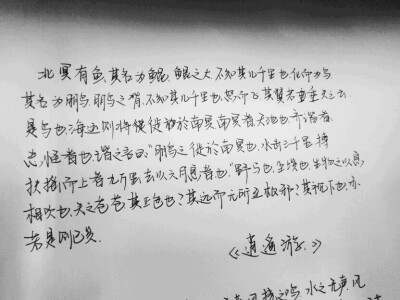 北冥有鱼,其名为鲲,鲲之大,不知其几千里也,化而为鸟,
其名为鹏,鹏之背,不知其几千里也,怒而飞,其翼若垂天之云,
是鸟也,海运则将徙于南冥,南冥者,天池也,齐谐者,
志怪者也,谐之言曰:“鹏之徙于南冥也,水击三千里,抟
扶摇而上者九万里,去以六月息者也”野马也,尘埃也,生物之以息
相吹也,天之苍苍,其正色也?其远而无所至极邪?其视下也,亦
若是则已矣.
《逍遥游》
之鸣,水之无声,风